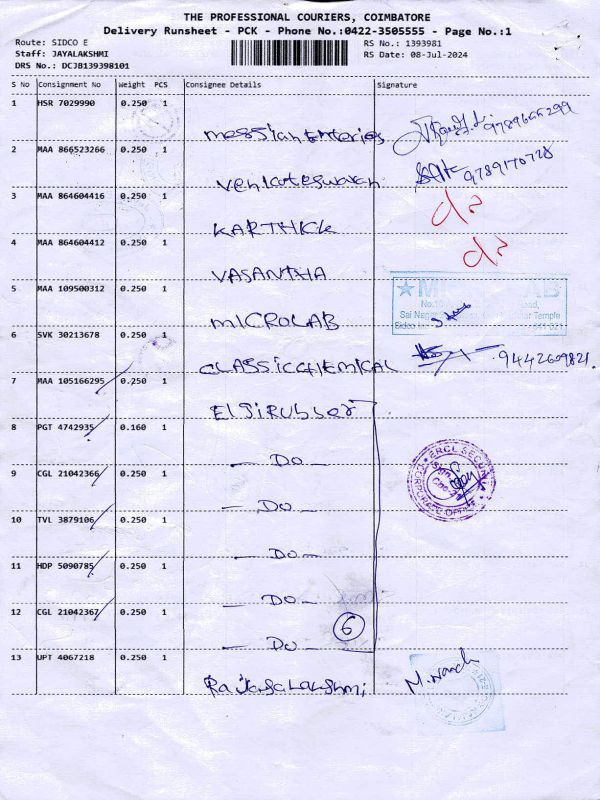 THE PROFESSIONAL COURIERS, COIMBATORE
Delivery Runsheet - PCK - Phone No.:0422-3505555 - Page No.:1
Route: SIDCO E
RS No.: 1393981
Staff: JAYALAKSHMI
RS Date: 08-Jul-2024
DRS No.: DCJB139398101
S No Consignment No Weight PCS Consignee Details Signature
1 HSR 7029990 0.250 1
9789655299
2 MAA 866523266 0.250 1
Venkateswaran 9789170728
3 MAA 864604416 0.250 1
KARTHICK
4 MAA 864604412 0.250 1
VASANTHA
5 MAA 109500312 0.250 1
MICROLAB
Sai Temple
641 021
6 SVK 30213678 0.250 1
CLASSIC CHEMICAL 9442609821.
7 MAA 105166295 0.250 1
Elgi Rubber
8 PGT 4742935 0.160 1
- Do -
ERCL SECURITY
CORPORATE OFFICE
9 CGL 21042366 0.250 1
- Do -
10 TVL 3879106 0.250 1
- Do -
11 HDP 5090785 0.250 1
- Do -
12 CGL 21042367 0.250 1
- Do - 6
13 UPT 4067218 0.250 1